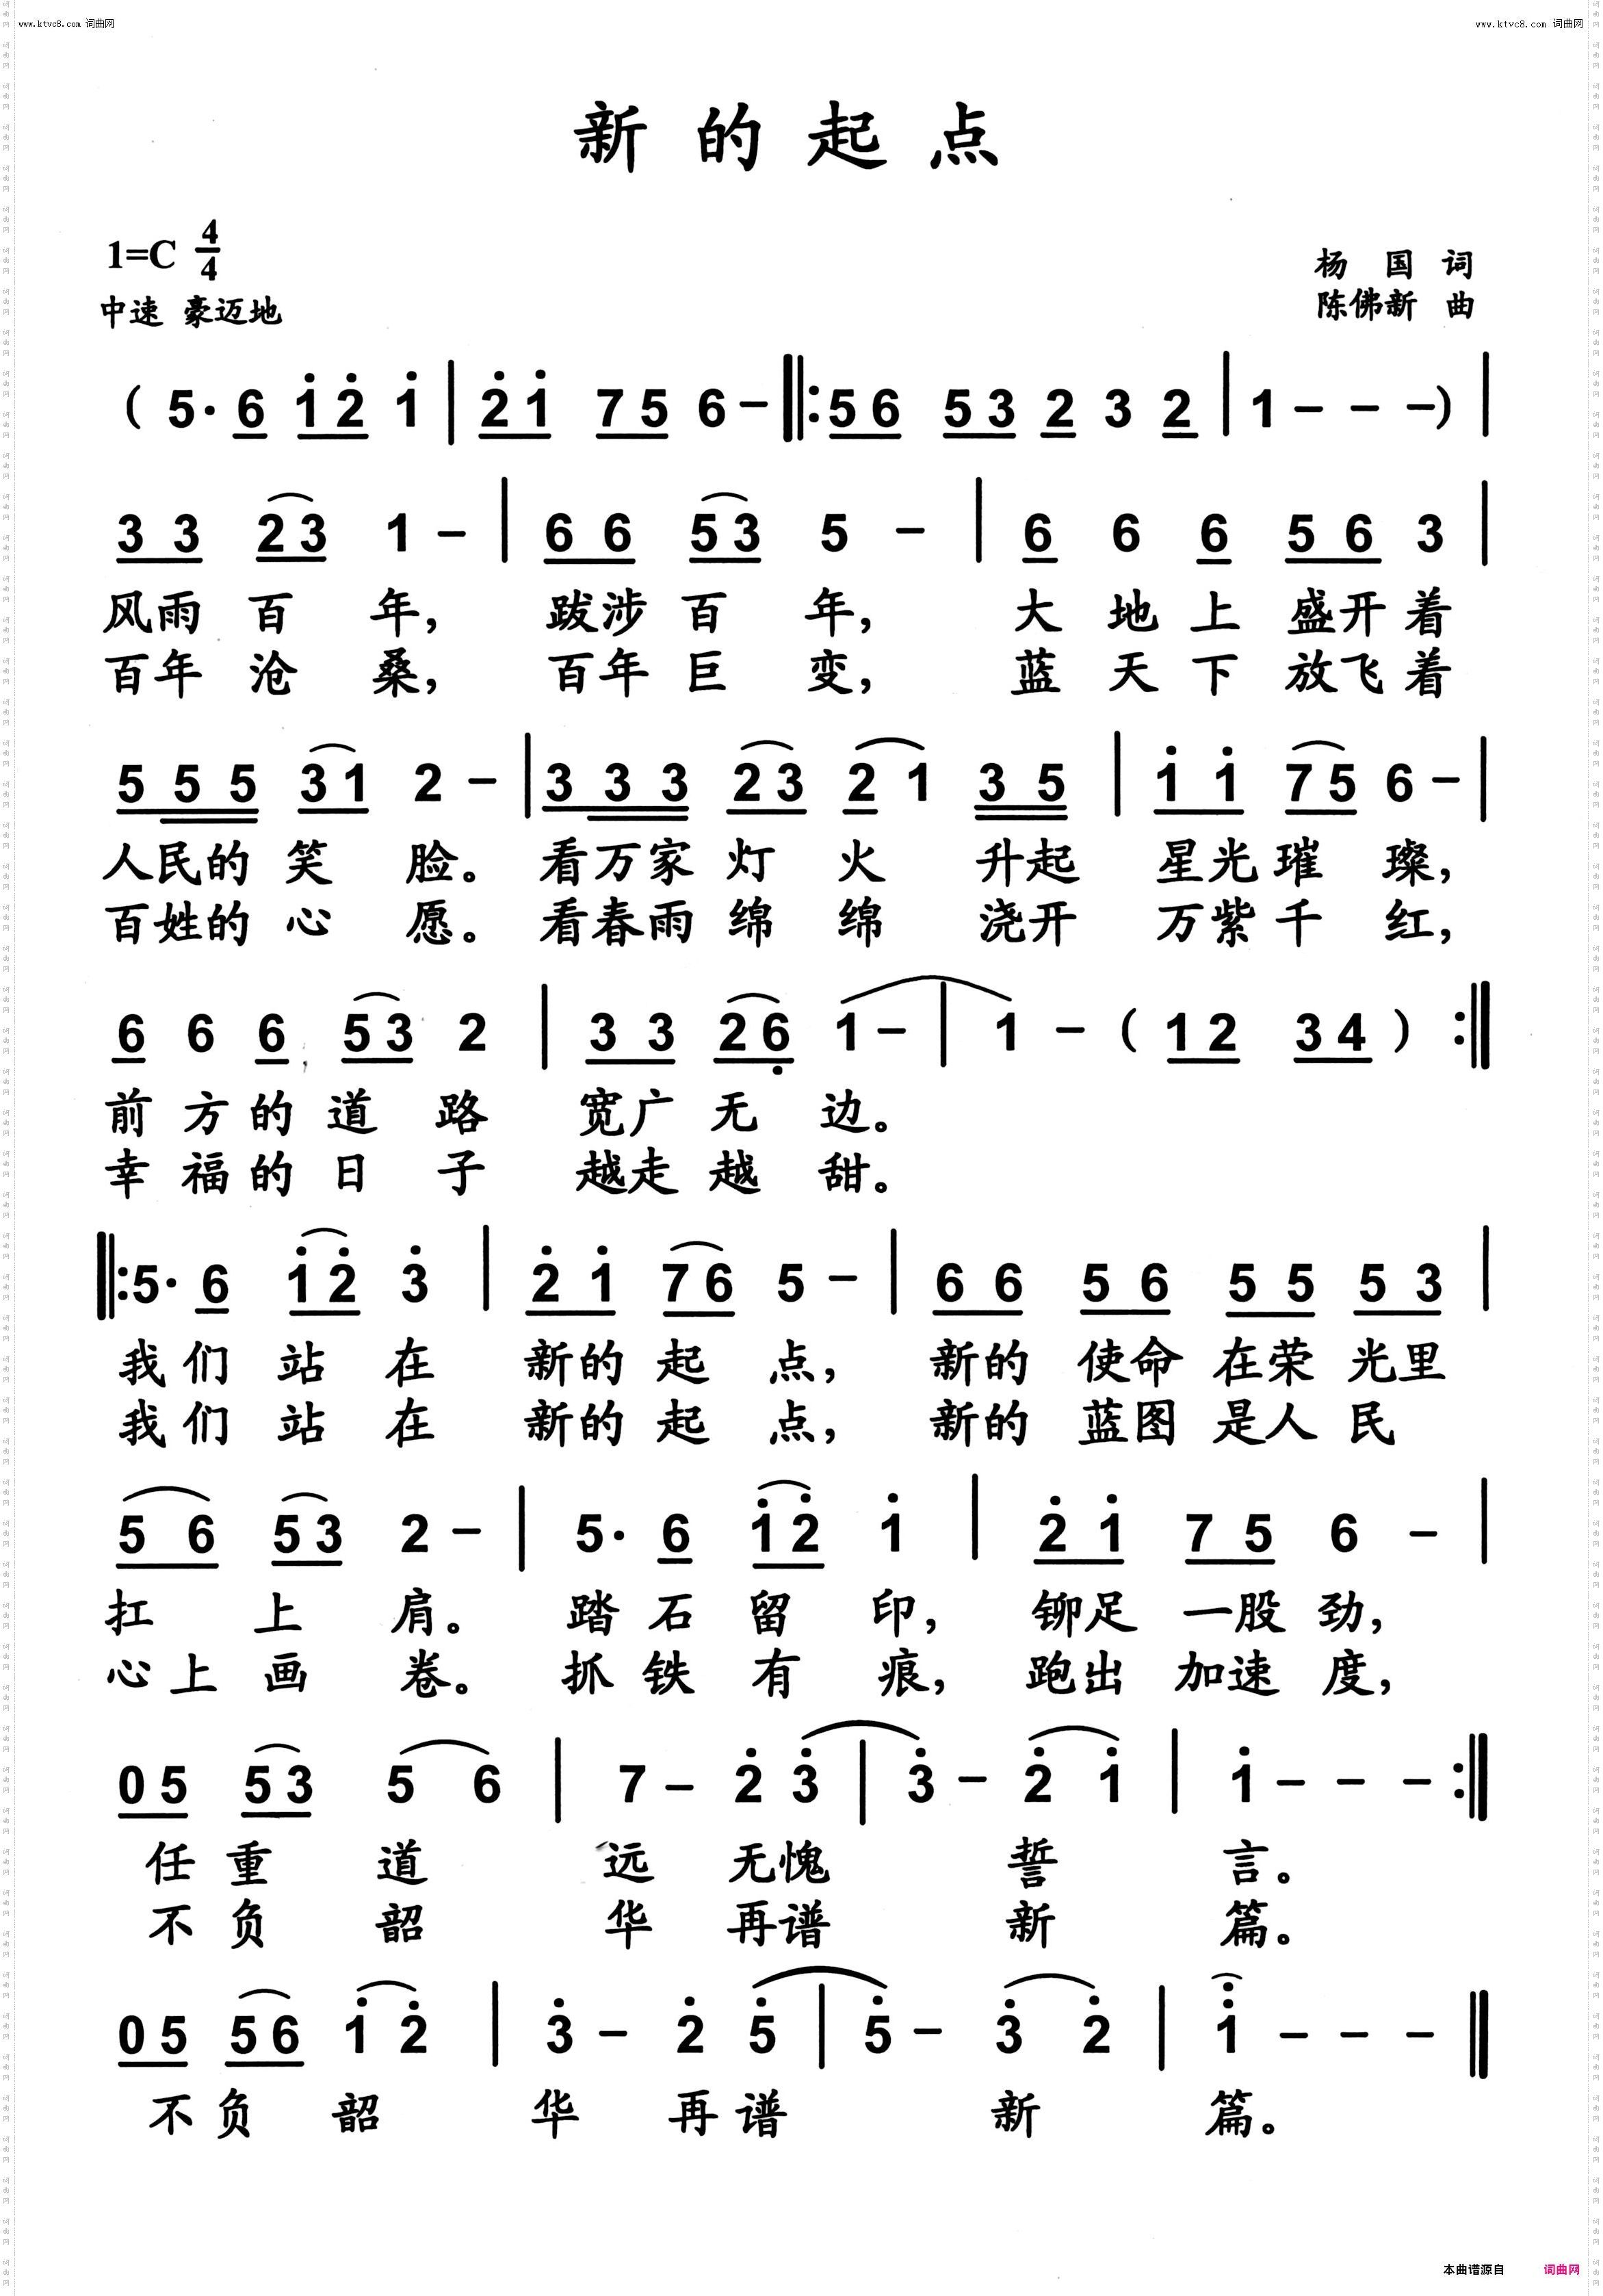 www.ktvc8.com 词曲网
www.ktvc8.com 词曲网
新的起点
1=C 4/4
杨 国 词
中速 豪迈地
陈佛新 曲
( 5· 6 1 2 1 | 2 1 7 5 6 - ‖: 5 6 5 3 2 3 2 | 1 - - - ) |
3 3 2 3 1 - | 6 6 5 3 5 - | 6 6 6 5 6 3 |
风雨百年, 跋涉百年, 大地上盛开着
百年沧桑, 百年巨变, 蓝天下放飞着
5 5 5 3 1 2 - | 3 3 3 2 3 2 1 3 5 | 1 1 7 5 6 - |
人民的笑脸。看万家灯火 升起 星光璀璨,
百姓的心愿。看春雨绵绵 浇开 万紫千红,
6 6 6 5 3 2 | 3 3 2 6 1 - | 1 - ( 1 2 3 4 ) :‖
前方的道路 宽广无边。
幸福的日子 越走越甜。
‖: 5· 6 1 2 3 | 2 1 7 6 5 - | 6 6 5 6 5 5 5 3 |
我们站在 新的起点, 新的使命在荣光里
我们站在 新的起点, 新的蓝图是人民
5 6 5 3 2 - | 5· 6 1 2 1 | 2 1 7 5 6 - |
扛上肩。 踏石留印, 铆足一股劲,
心上画卷。 抓铁有痕, 跑出加速度,
0 5 5 3 5 6 | 7 - 2 3 | 3 - 2 1 | 1 - - - :‖
任重道 远无愧 誓 言。
不负韶 华再谱 新 篇。
0 5 5 6 1 2 | 3 - 2 5 | 5 - 3 2 | 1 - - - ‖
不负韶 华再谱 新 篇。
本曲谱源自 词曲网